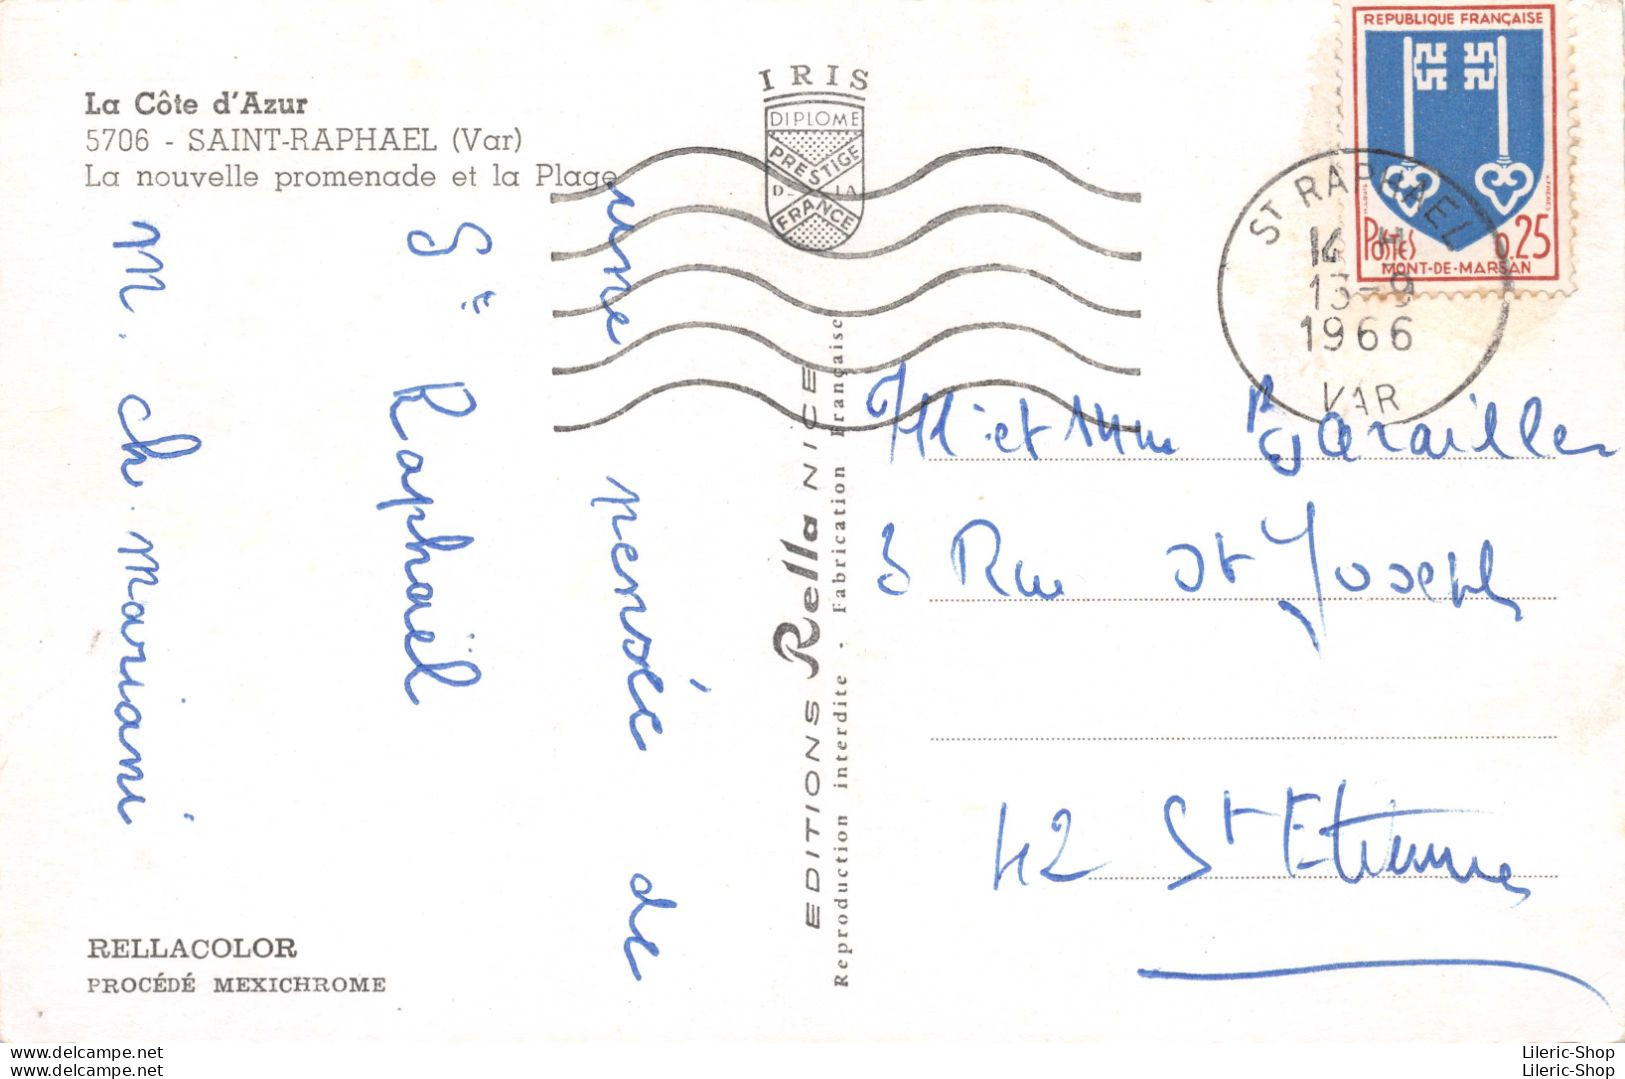 La Côte d'Azur
5706 - SAINT-RAPHAEL (Var)
La nouvelle promenade et la Plage
IRIS
DIPLOME
PRESTIGE
DE LA
FRANCE
REPUBLIQUE FRANÇAISE
POSTES 0,25
MONT-DE-MARSAN
ST RAPHAEL
13-9
1966
VAR
une pensée de
St Raphaël
M. Ch. Mariani
EDITIONS Rella NICE
Reproduction interdite - Fabrication Française
M et Mme
3 Rue St Joseph
42 St Etienne
RELLACOLOR
PROCÉDÉ MEXICHROME
www.delcampe.net
www.delcampe.net
Lileric-Shop
Lileric-Shop